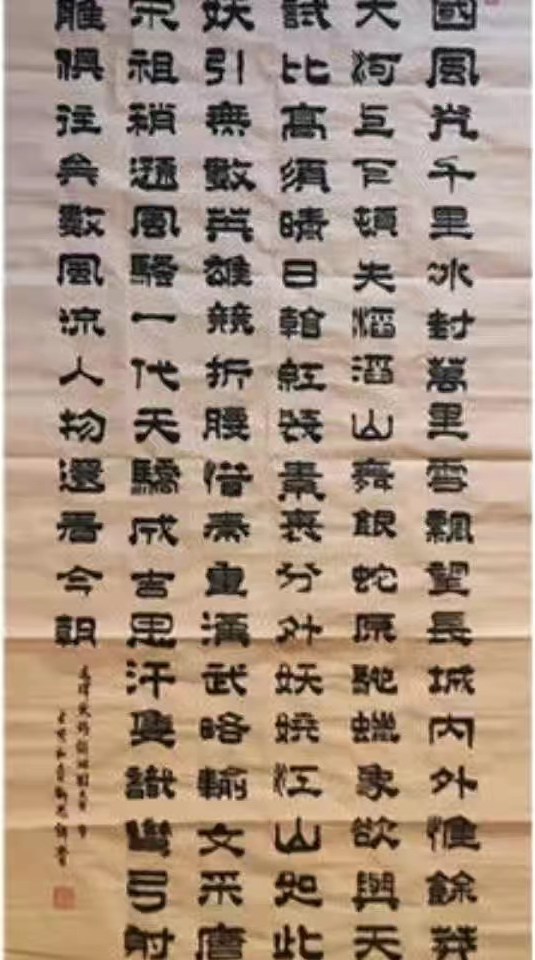 國風光千里冰封萬里雪飄望長城內外惟餘莽
大河上下頓失滔滔山舞銀蛇原馳蠟象欲與天
試比高須晴日看紅裝素裹分外妖嬈江山如此
妖引無數英雄競折腰惜秦皇漢武略輸文采唐
宋祖稍遜風騷一代天驕成吉思汗隻識彎弓射
雕俱往矣數風流人物還看今朝